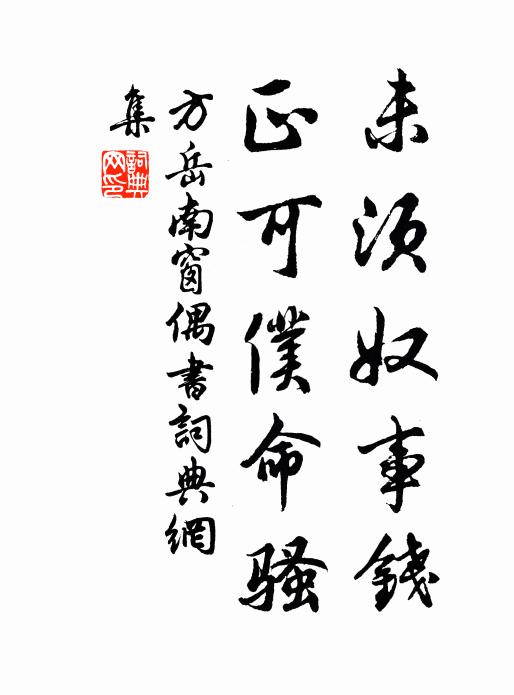 未須奴事錢
正可僕命騷
方岳南窗偶書詞典網
集
詞典網印